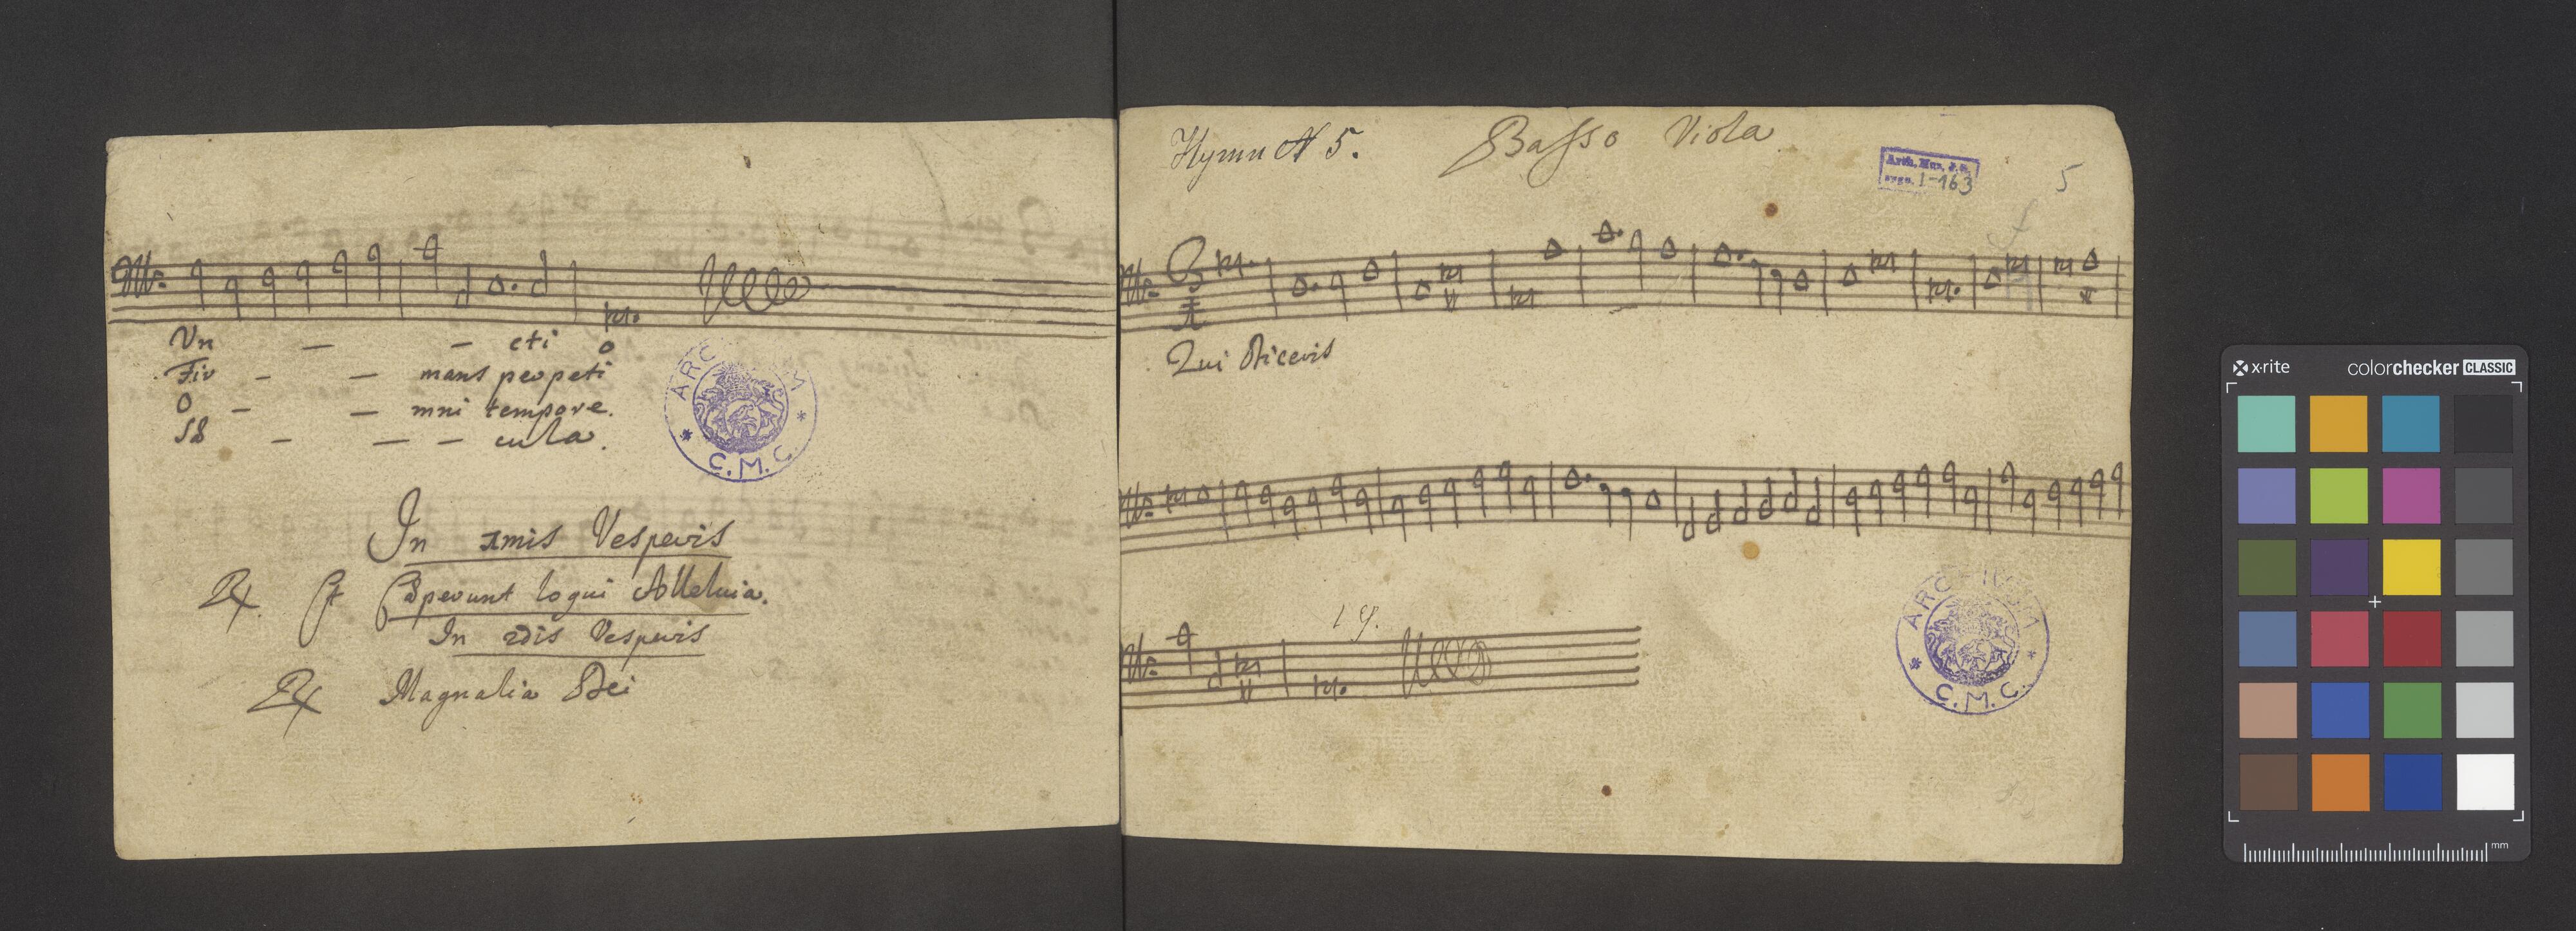 Vn — — cti o
Fir — — mans perpeti
O — — mni tempore.
Sæ — — — cula.
ARCHIVUM
* C. M. C. *
In 1mis Vesperis
Rx. Et Cæperunt loqui Alleluia.
In 2dis Vesperis
Rx Magnalia Dei
Hymn N 5. Basso Viola
Arch. Mus. J. G.
sygn. I-163
5
f
3
1
Qui Diceris
19.
ARCHIVUM
* C. M. C. *
x-rite colorchecker CLASSIC
mm